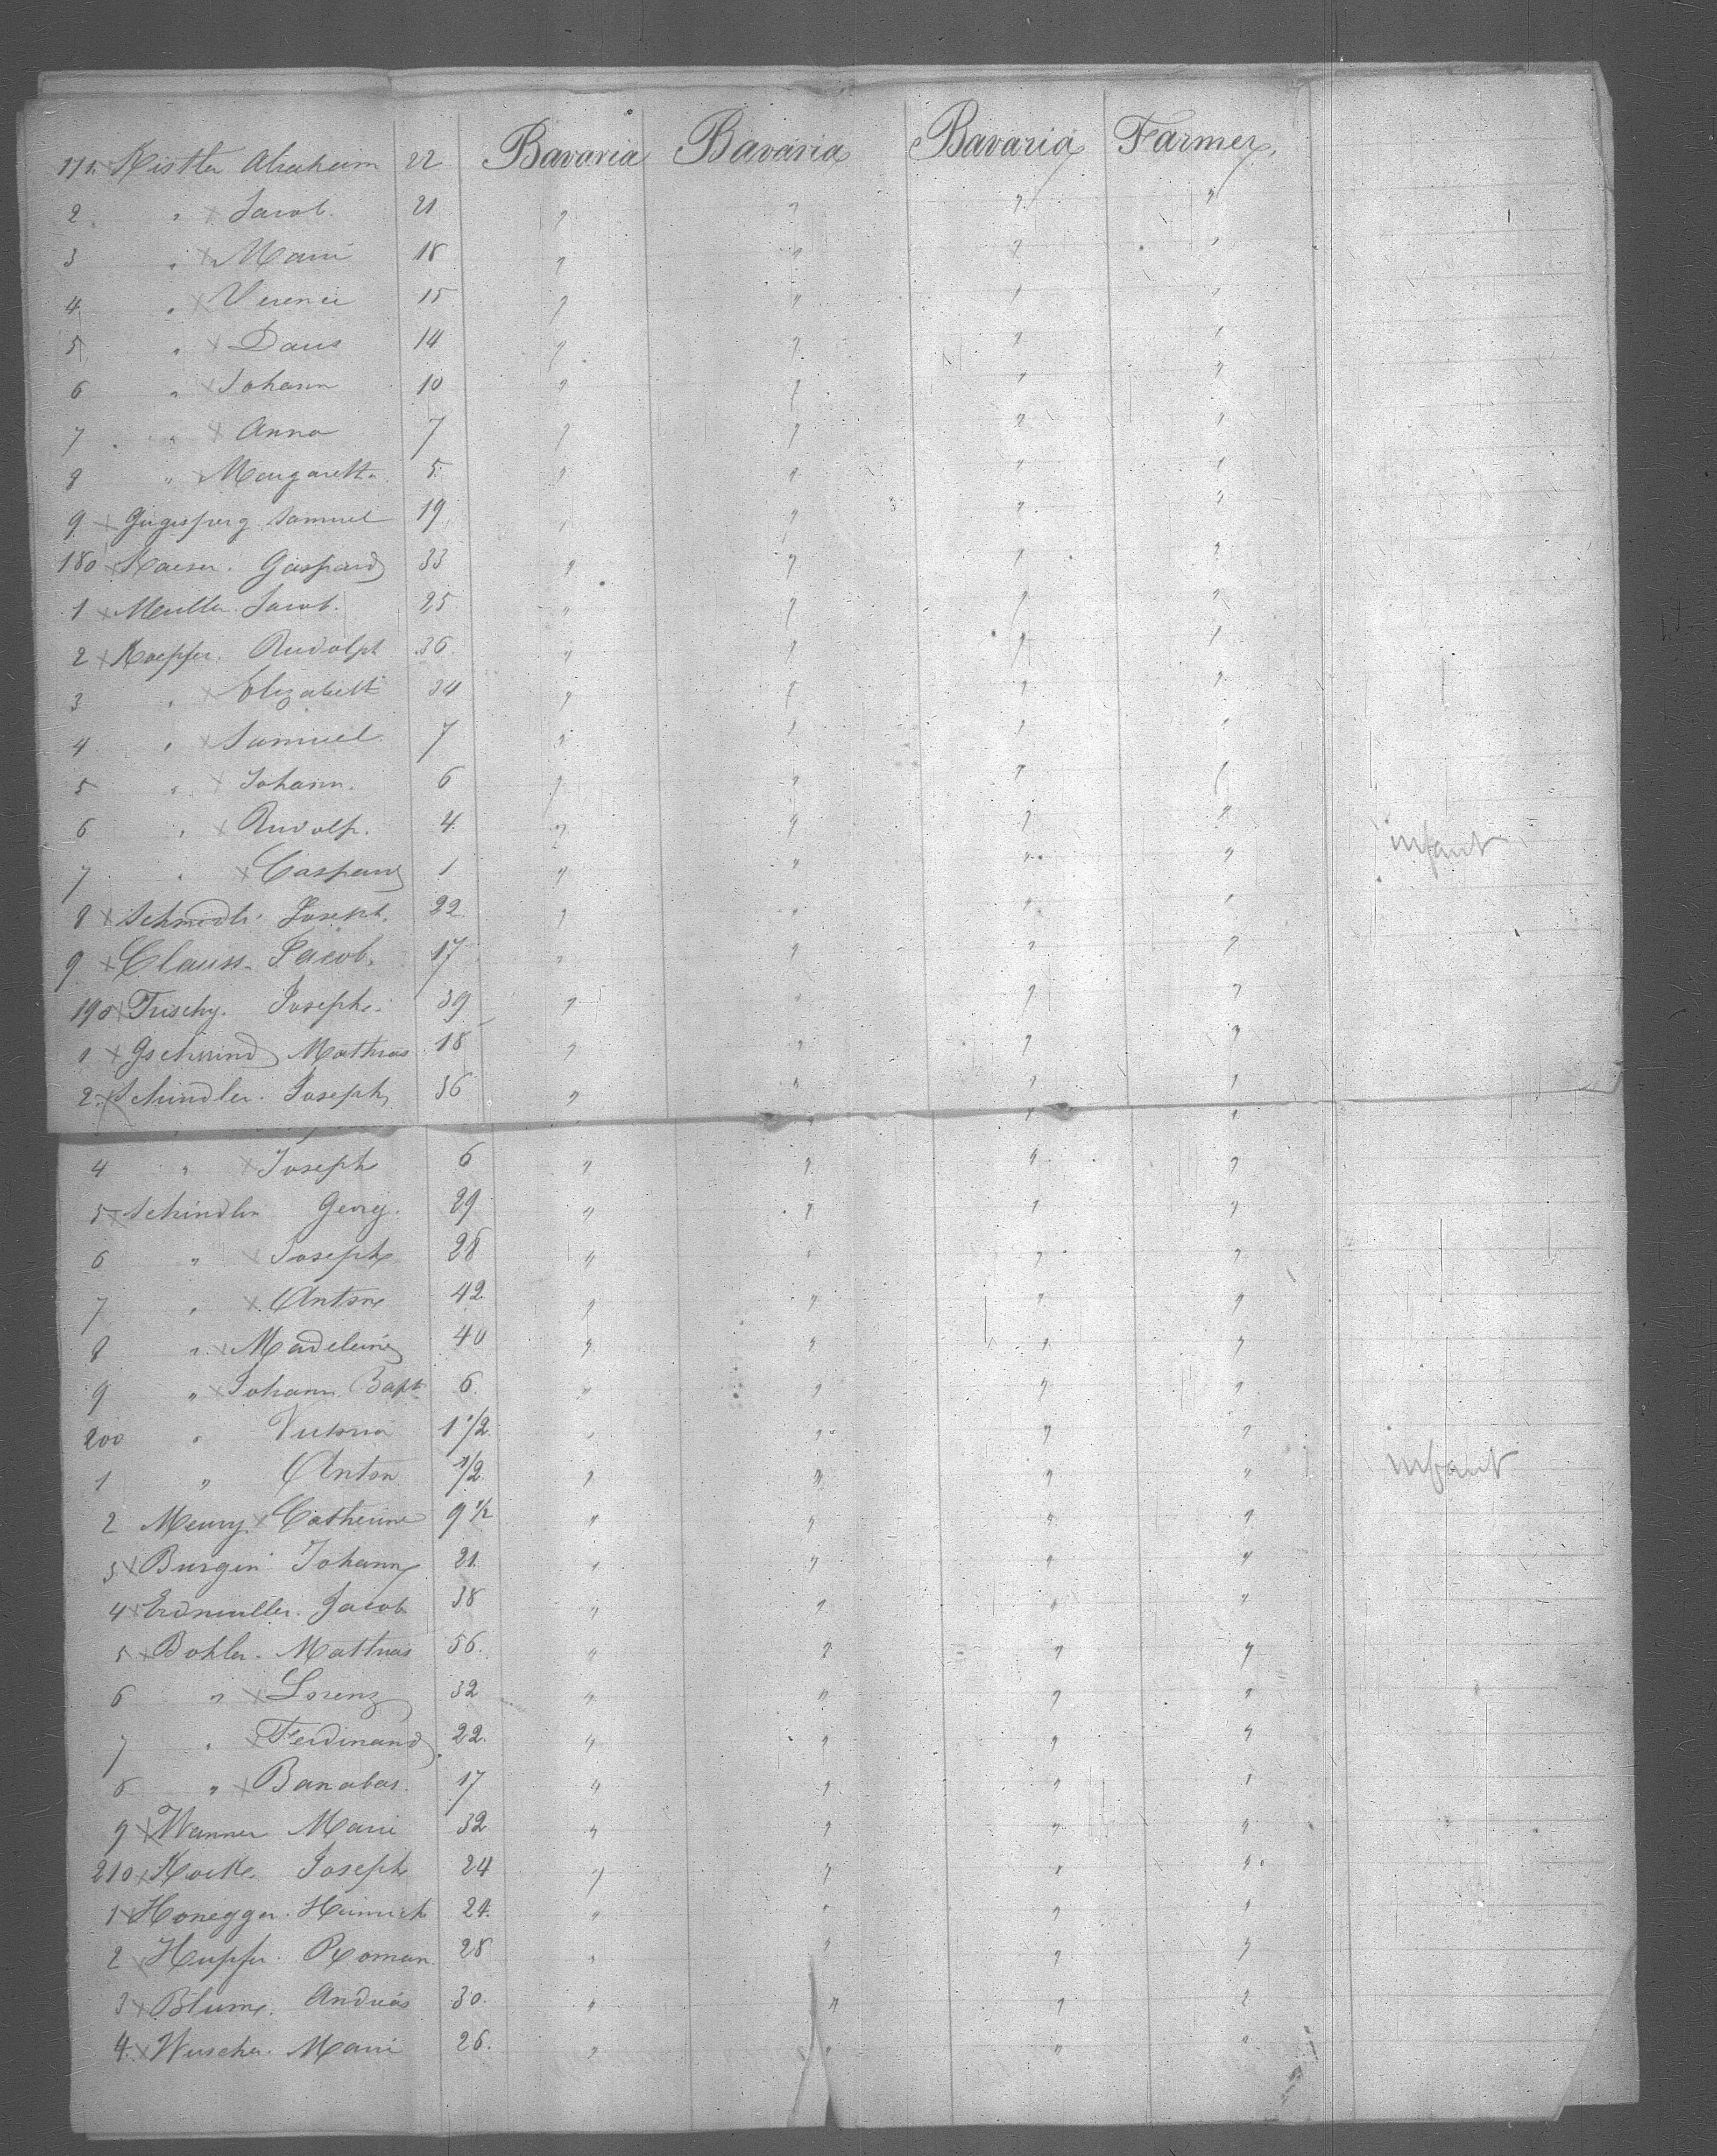 171. Kistler Abraham 22 Bavaria Bavaria Bavaria Farmer,
2. " x Jacob. 21 " " " "
3 " x Marie 18 " " " "
4 " x 15 " " " "
5 " x 14 " " " "
6 " x Johann 10 " " " "
7 " x Anna 7 " " " "
8 " x Margareth. 5. " " " "
9 x Samuel 19 " " " "
180 x Kaeser. Gaspard 33 " " " "
1 x Meuller. Jacob. 25 " " " "
2 x Koepfer. Rudolph 36. " " " "
3 " x Elizabeth 34 " " " "
4 " x Samuel. 7 " " " "
5 " x Johann. 6 " " " "
6 " x Rudolp. 4. " " " "
7 " x Caspard 1 " " " " infant
8 x Schmidli. Joseph. 22 " " " "
9 x Clauss. Jacob. 17 " " " "
190 x Joseph. 39 " " " "
1 x Gschwind Mathias 18 " " " "
2. x Schindler. Joseph 36 " " " "
4 " x Joseph 6 " " " "
5 x Schindler Georg. 29 " " " "
6 " x Joseph 28 " " " "
7 " x Anton 42 " " " "
8 " x Madeleine 40 " " " "
9 " x Johann. Bapt 6. " " " "
200 " Victoria 1 1/2 " " " "
1 " Anton 1/2 " " " " infant
2 Meury. x Catherine 9 1/2 " " " "
3 x Burgin Johann 21. " " " "
4 x Erdmuller. Jacob 38 " " " "
5 x Bohler. Mathias 56. " " " "
6 " x Lorenz 32 " " " "
7 " x Ferdinand 22. " " " "
8 " x Banabas. 17 " " " "
9 x Wanner Marie 32 " " " "
210 x Joseph 24 " " " "
1 x Honegger. Heinrich 24. " " " "
2 x Hupfer. Roman. 28 " " " "
3 x Blum. Andreas 30. " " " "
4. x Wuscher. Marie 26. " " " "